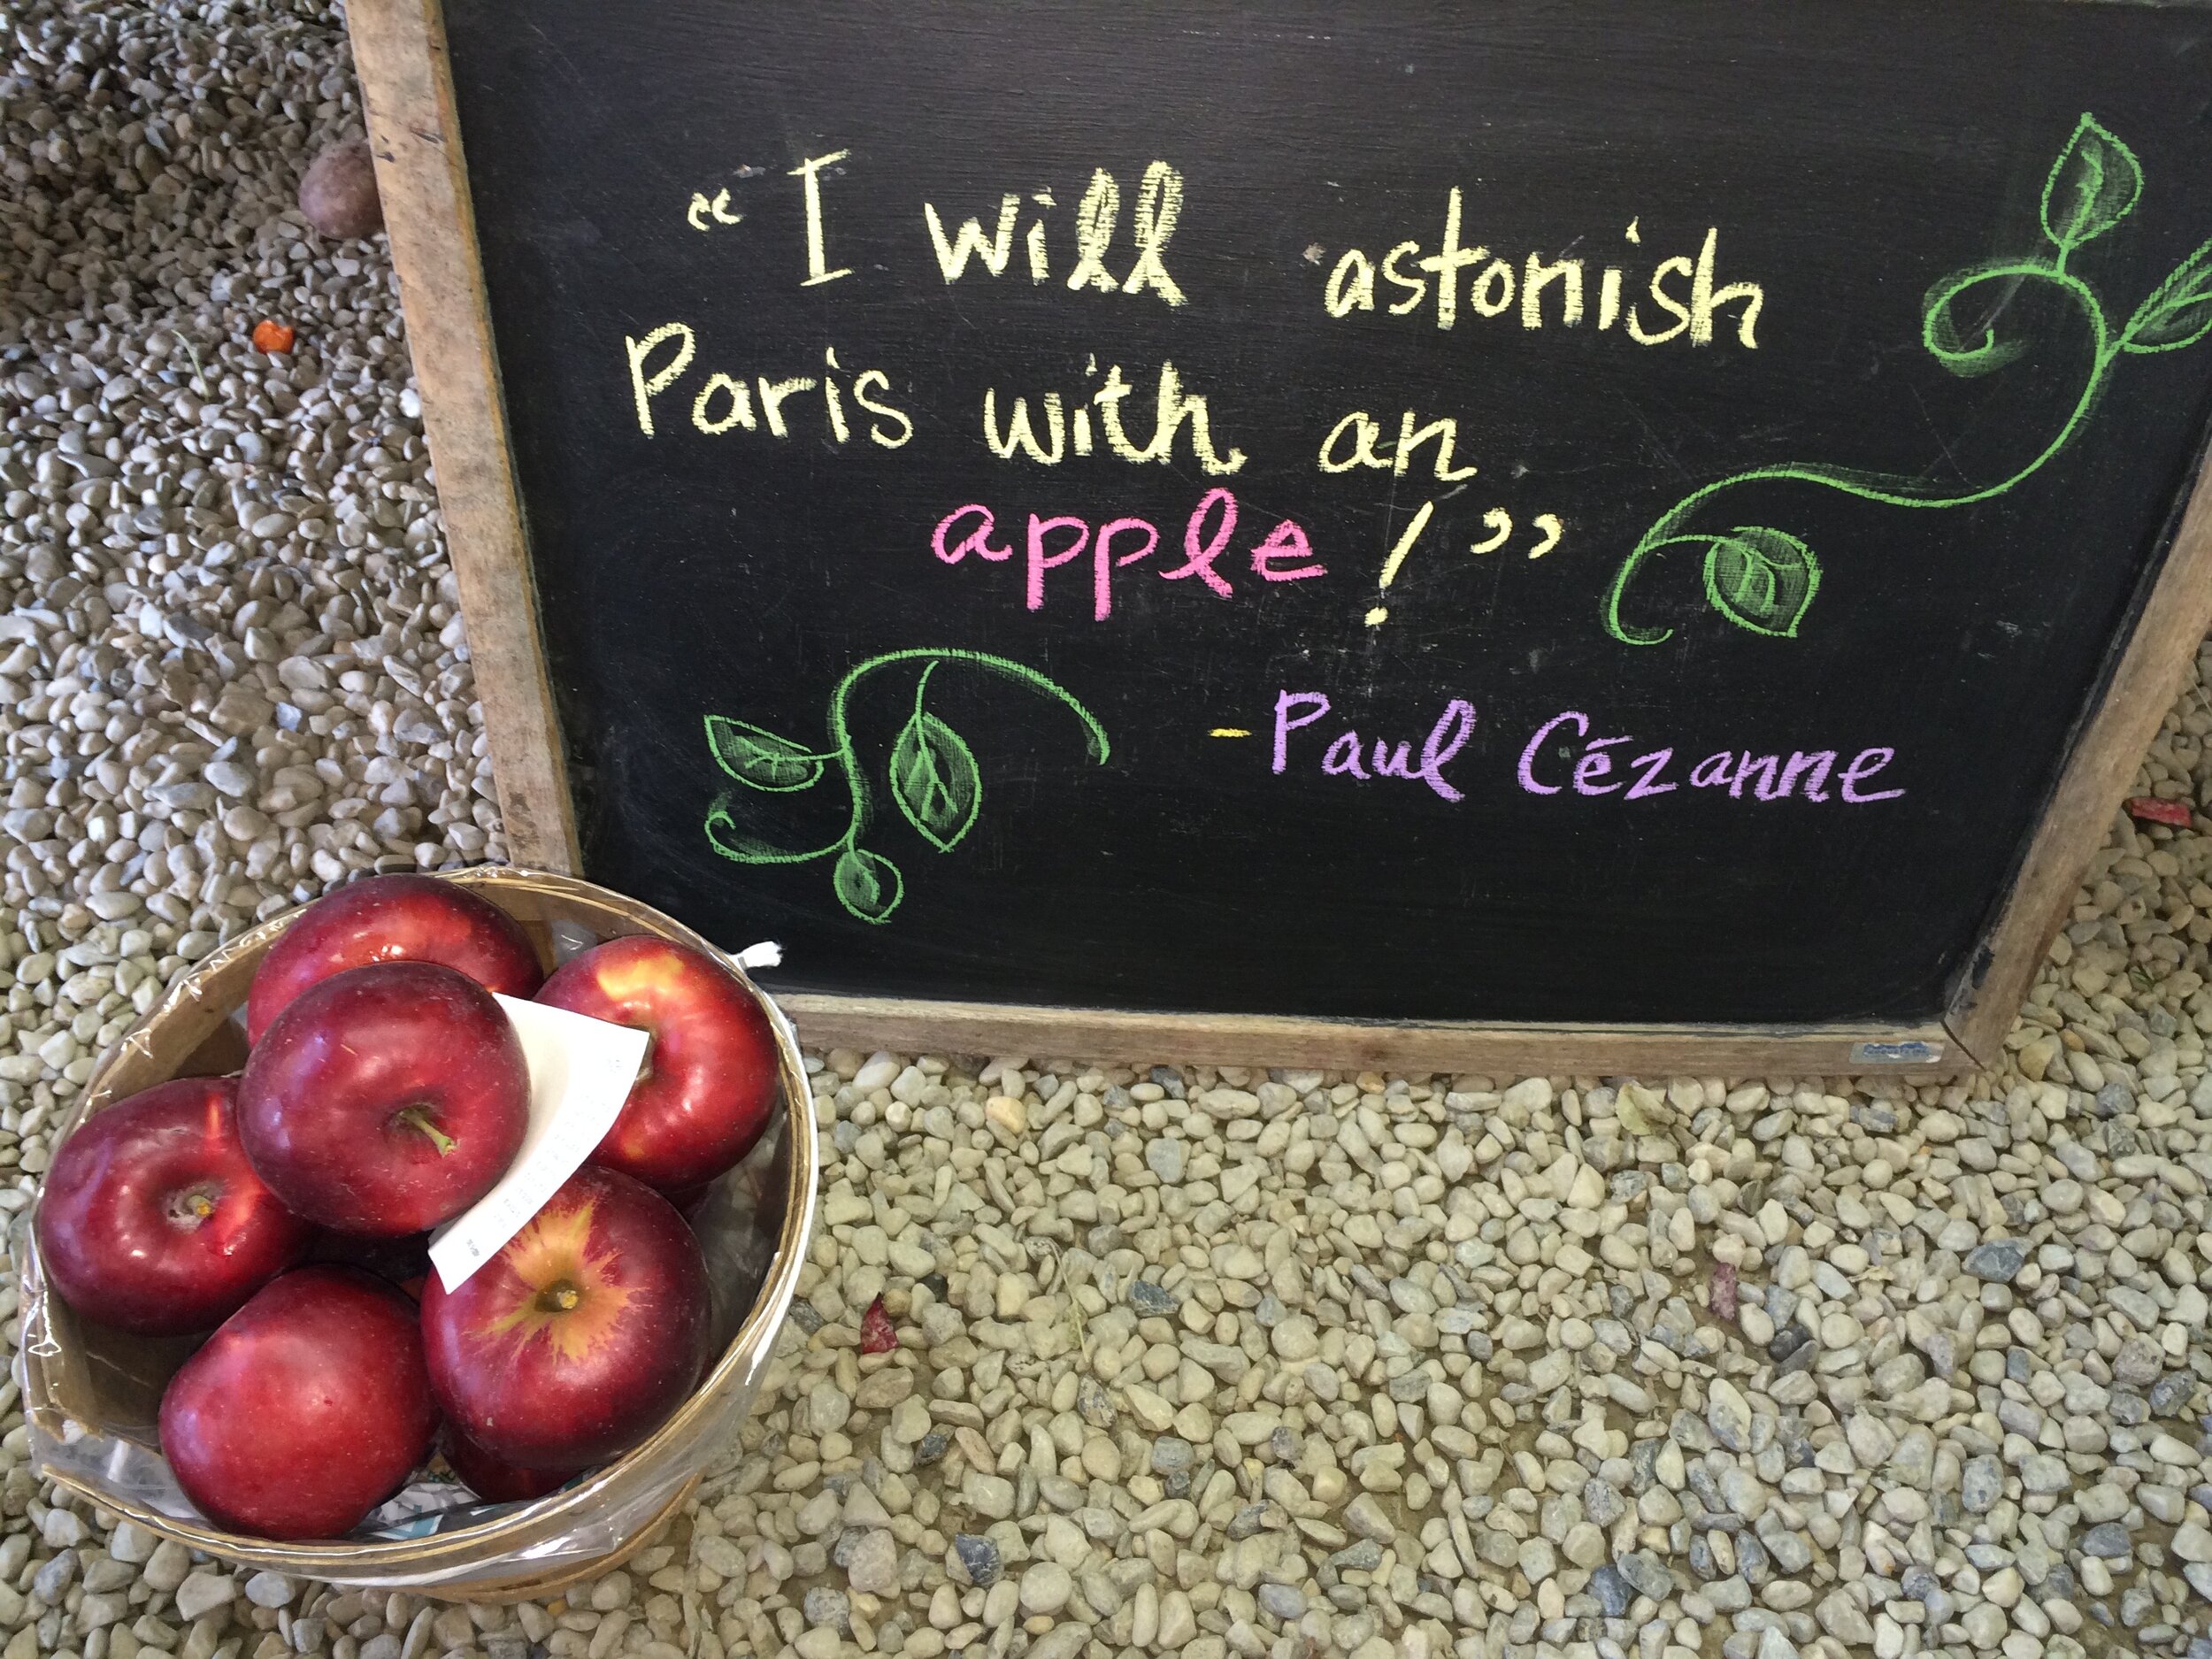 “I will astonish
Paris with an
apple!”
-Paul Cézanne